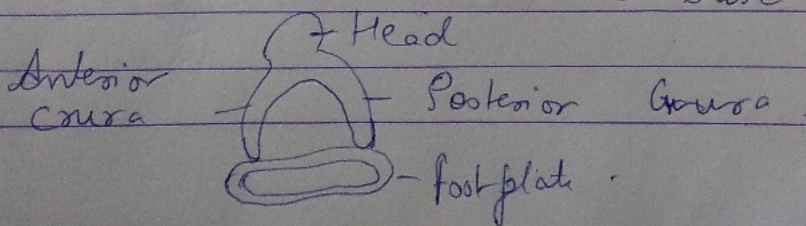 Head
Anterior
Crura
Posterior Croura
footplate.